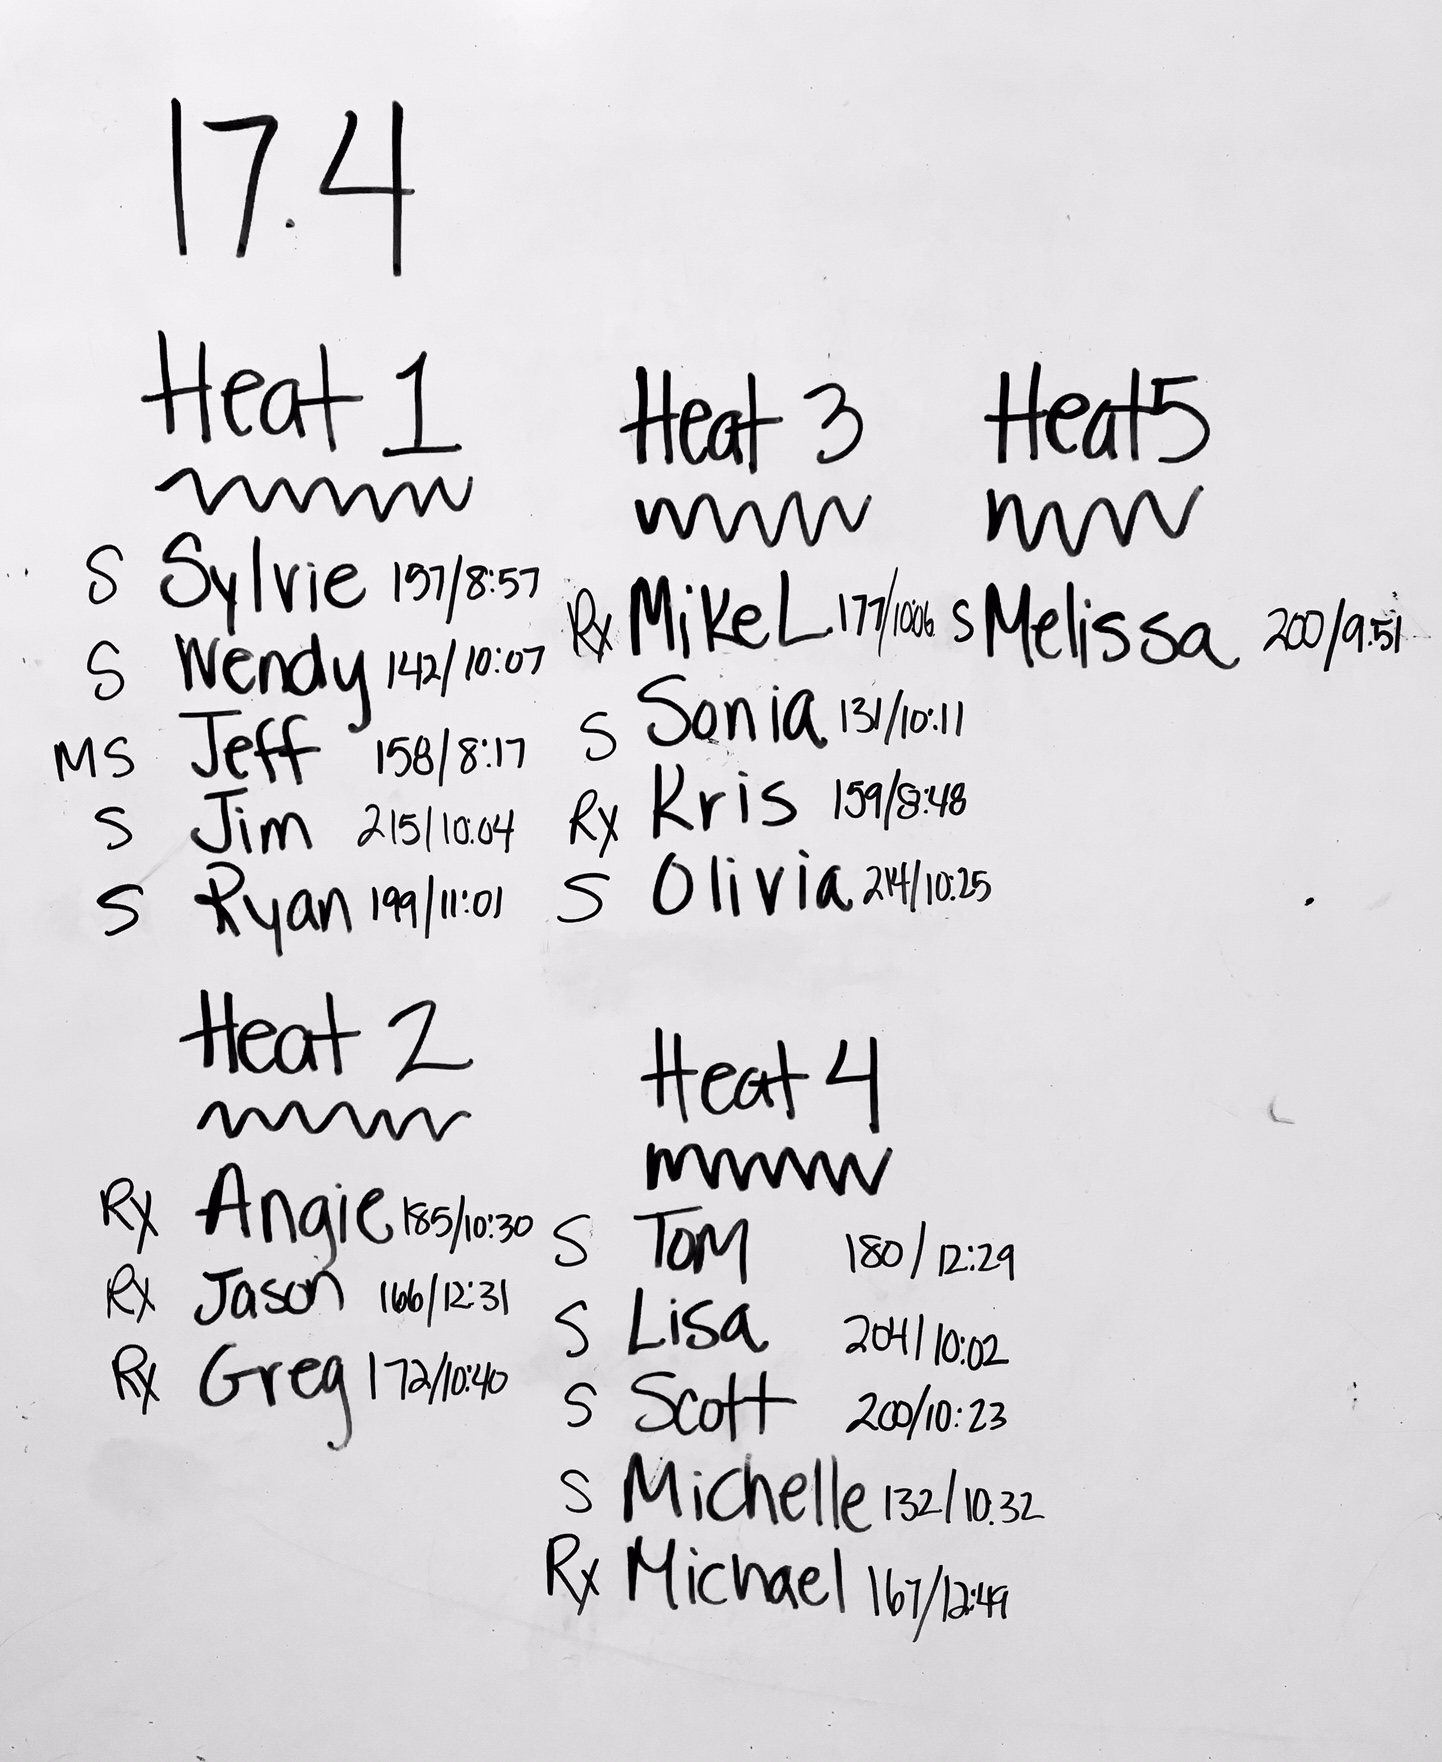 17.4
Heat 1
S Sylvie 157/8:57
S Wendy 142/10:07
MS Jeff 158/8:17
S Jim 215/10:04
S Ryan 199/11:01
Heat 2
Rx Angie 185/10:30
Rx Jason 166/12:31
Rx Greg 172/10:40
Heat 3
Rx Mike L 177/10:06
S Sonia 131/10:11
Rx Kris 159/8:48
S Olivia 214/10:25
Heat 4
S Tom 180/12:29
S Lisa 204/10:02
S Scott 200/10:23
S Michelle 132/10:32
Rx Michael 167/12:49
Heat 5
S Melissa 200/9:51